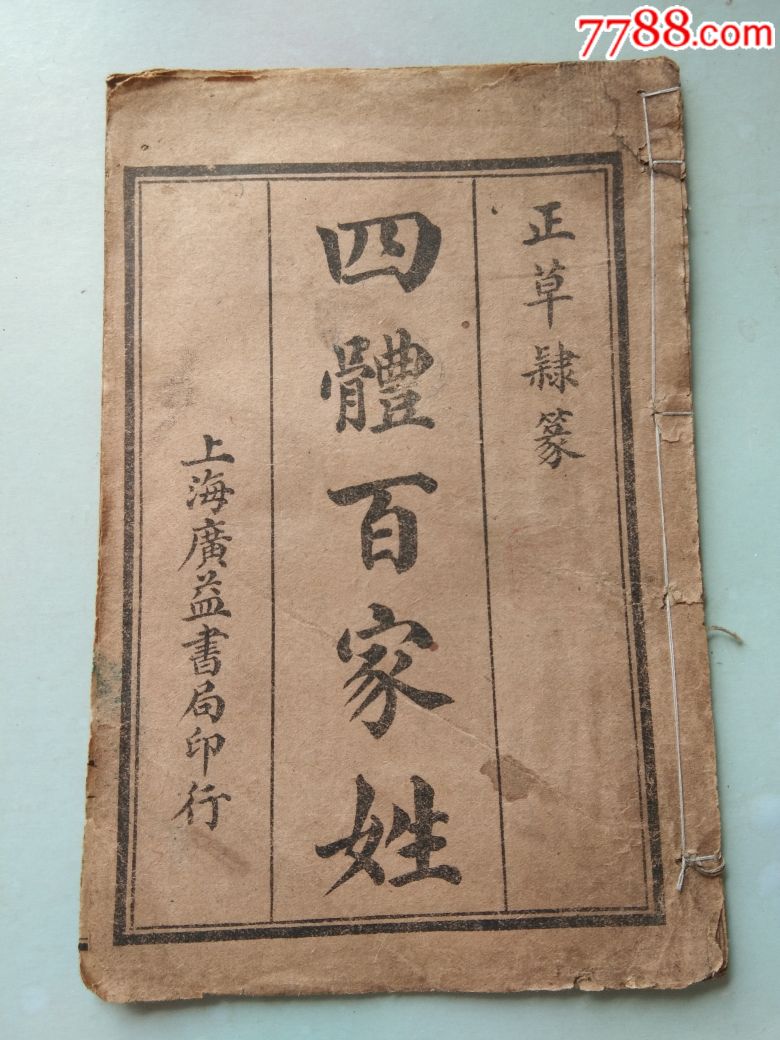 7788.com
正草隸篆
四體百家姓
上海廣益書局印行